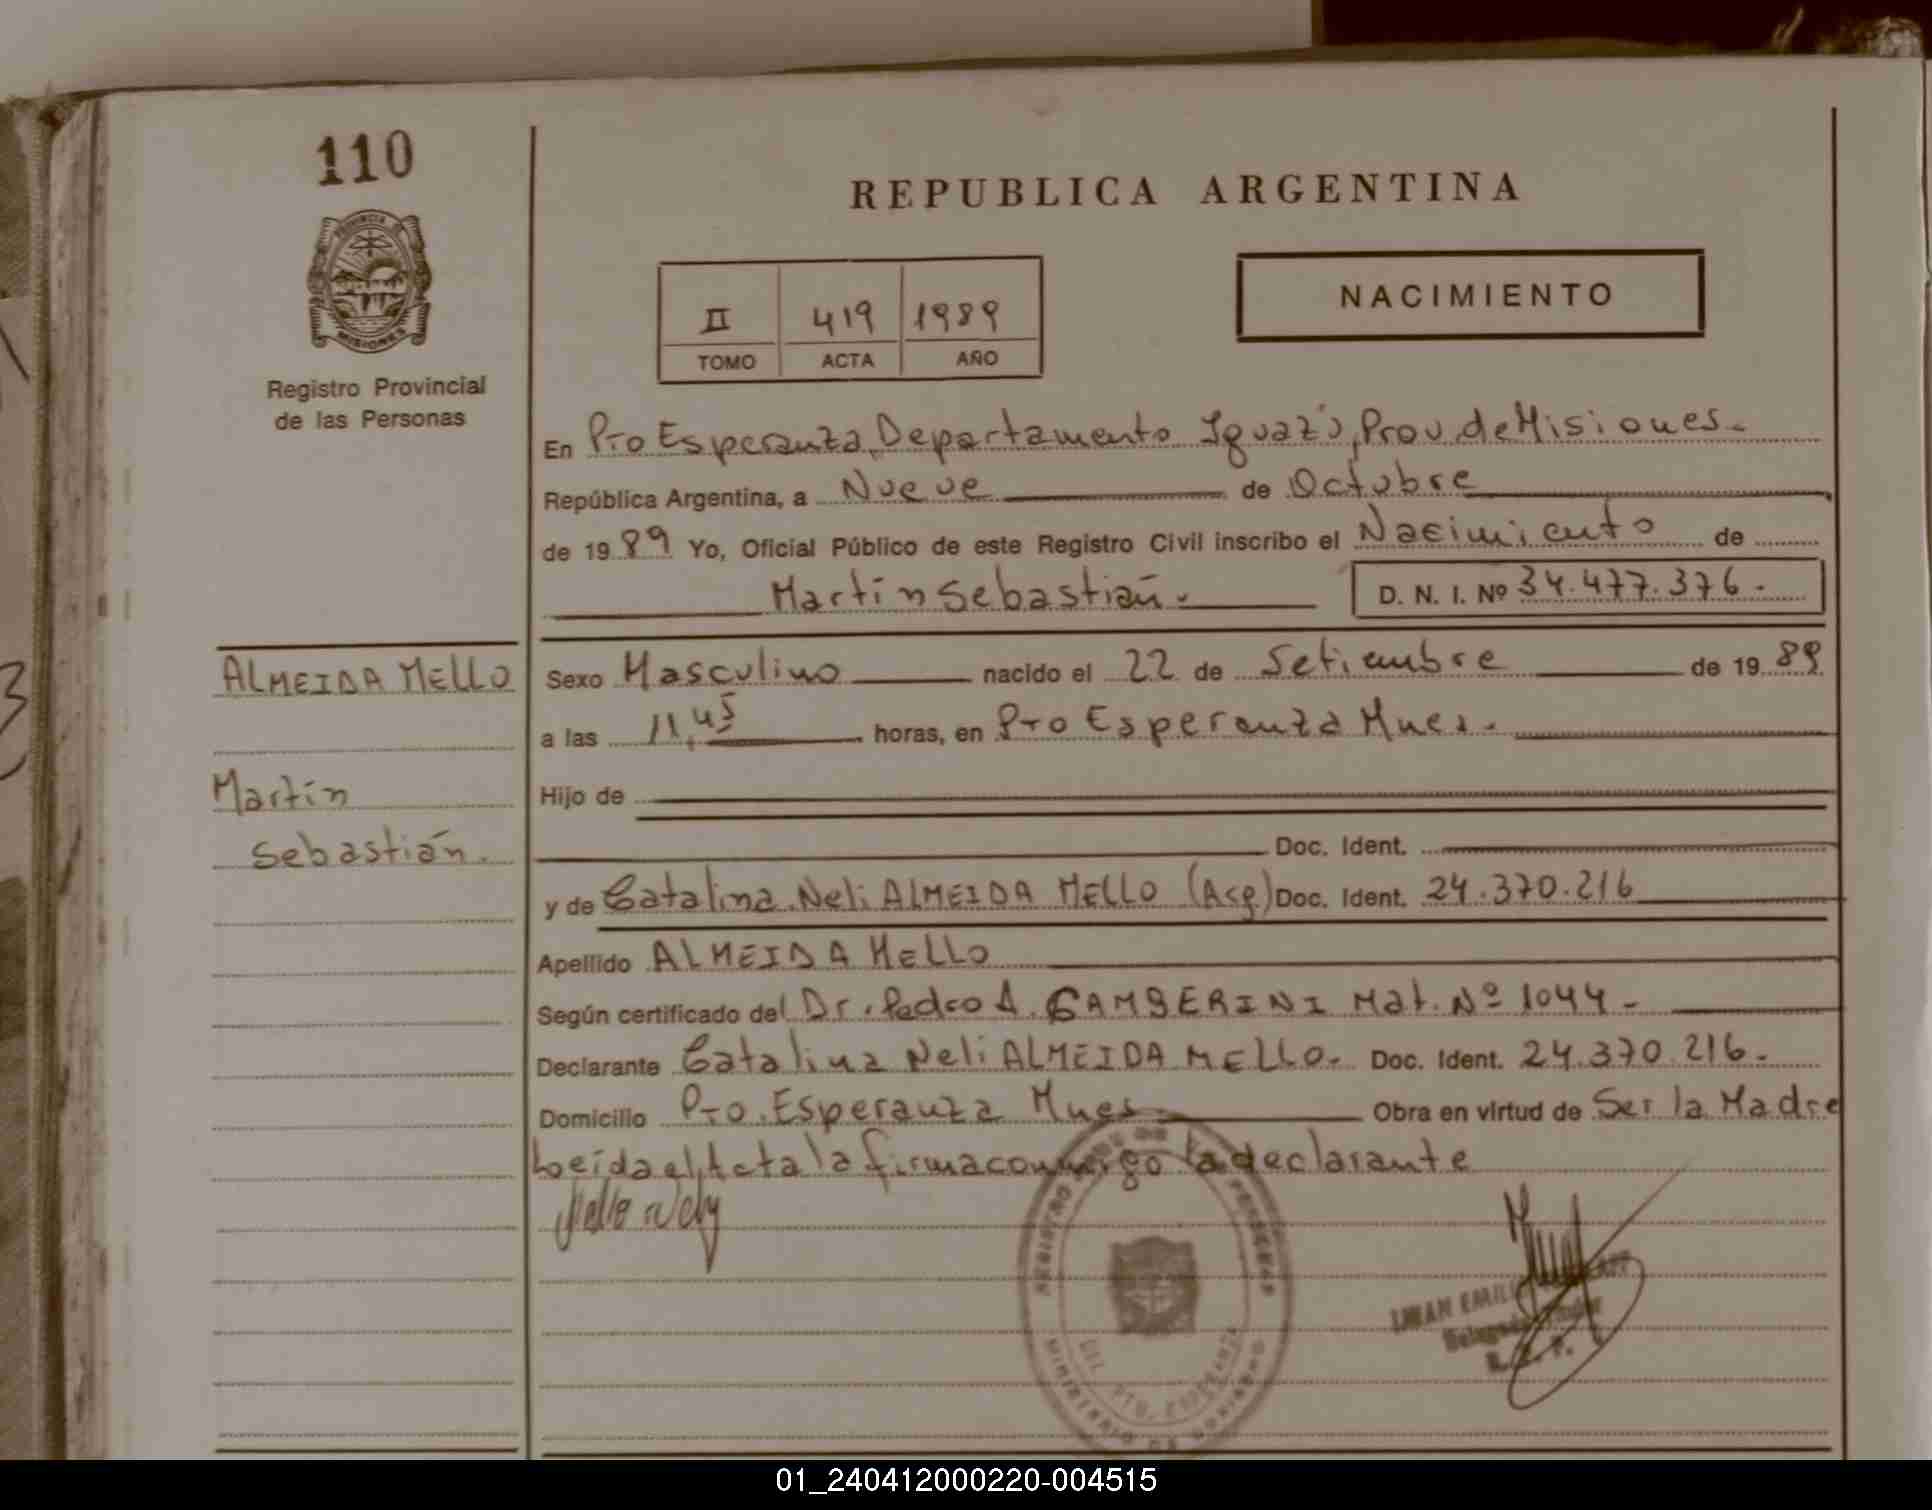 110
PROVINCIA DE
MISIONES
Registro Provincial
de las Personas
REPUBLICA ARGENTINA
II 419 1989
TOMO ACTA AÑO
NACIMIENTO
En Pto Esperanza, Departamento Iguazú, Prov. de Misiones.
República Argentina, a Nueve de Octubre
de 1989 Yo, Oficial Público de este Registro Civil inscribo el Nacimiento de
Martín Sebastián. D. N. I. Nº 34.477.376.
ALMEIDA MELLO
Martín
Sebastián.
Sexo Masculino nacido el 22 de Setiembre de 1989
a las 11,45 horas, en Pto Esperanza Mnes.
Hijo de
Doc. Ident.
y de Catalina Neli ALMEIDA MELLO (Arg.) Doc. Ident. 24.370.216
Apellido ALMEIDA MELLO
Según certificado del Dr. Pedro A. GAMBERINI Mat. Nº 1044-
Declarante Catalina Neli ALMEIDA MELLO. Doc. Ident. 24.370.216.
Domicilio Pto. Esperanza Mnes Obra en virtud de Ser la Madre
Leída el Acta la firma conmigo la declarante
Mello Nely
REGISTRO DE LAS PERSONAS
DEL PTO. ESPERANZA
MINISTERIO DE GOBIERNO
EMIL
Delegado Titular
R. P.
01_240412000220-004515